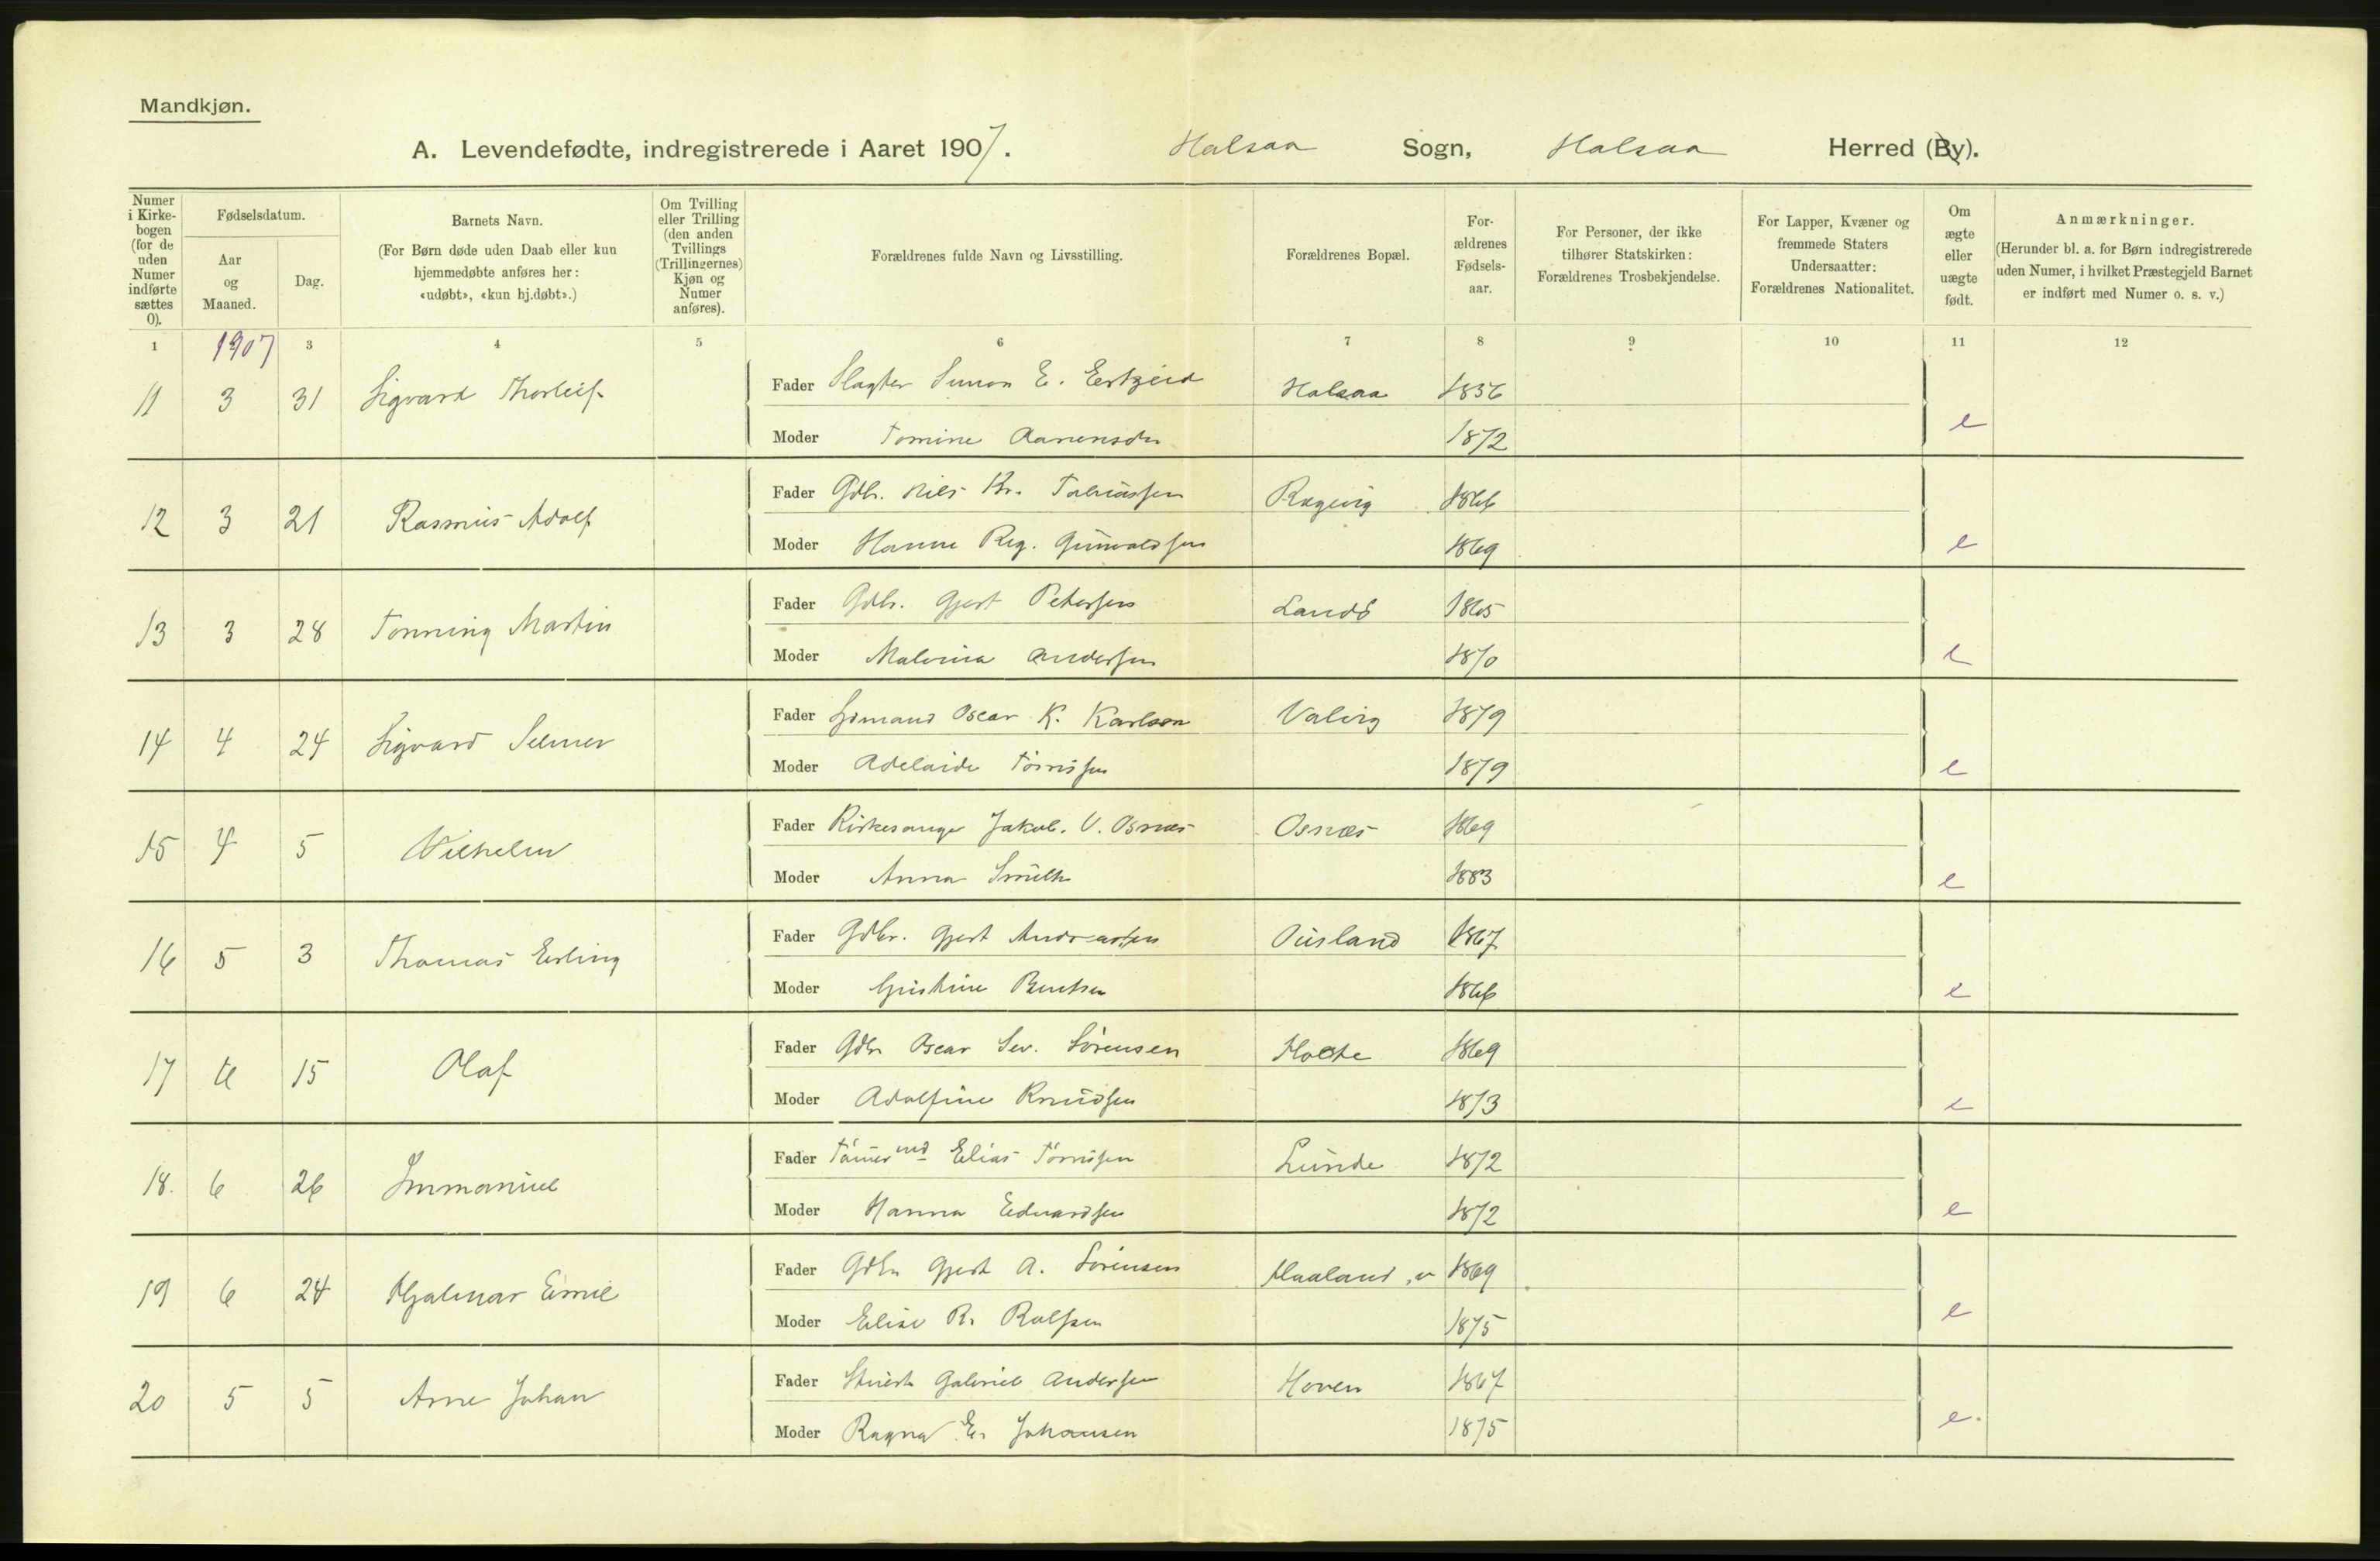 Mandkjøn.
A. Levendefødte, indregistrerede i Aaret 1907. Halsaa Sogn, Halsaa Herred (By).
Numer i Kirkebogen (for de uden Numer indførte sættes 0).
Fødselsdatum.
Aar og Maaned.
Dag.
Barnets Navn.
(For Børn døde uden Daab eller kun hjemmedøbte anføres her: «udøbt», «kun hj.døbt».)
Om Tvilling eller Trilling (den anden Tvillings (Trillingernes) Kjøn og Numer anføres).
Forældrenes fulde Navn og Livsstilling.
Forældrenes Bopæl.
Forældrenes Fødselsaar.
For Personer, der ikke tilhører Statskirken: Forældrenes Trosbekjendelse.
For Lapper, Kvæner og fremmede Staters Undersaatter: Forældrenes Nationalitet.
Om ægte eller uægte født.
Anmærkninger.
(Herunder bl. a. for Børn indregistrerede uden Numer, i hvilket Præstegjeld Barnet er indført med Numer o. s. v.)
1 1907 3 4 5 6 7 8 9 10 11 12
11 3 31 Sigvard Thorleif Fader Slagter Simon E. Halsaa 1856
Moder Tomine Aanensdtr 1872 e
12 3 21 Rasmus Adolf Fader Gdbr. Nils Kr. Tobiassen Ragevig 1866
Moder Hanne Reg. Gunvaldsen 1869 e
13 3 28 Tønning Martin Fader Gdbr. Gjert Petersen Landö 1865
Moder Malvina Andersen 1870 e
14 4 24 Sigvard Selmer Fader Sjömand Oscar K. Karlson Valvig 1879
Moder Adelaide Tönnesen 1879 e
15 4 5 Vilhelm Fader Kirkesanger Jakob. V. Osnes Osnæs 1869
Moder Anna Smith 1883 e
16 5 3 Thomas Erling Fader Gdbr. Gjert Andreassen Ousland 1867
Moder Gristine Bentsen 1866 e
17 6 15 Olaf Fader Gdbr Oscar Sev. Sörensen Holte 1869
Moder Adolfine Knudsen 1873 e
18. 6 26 Immanuel Fader Tömmermd Elias Tönnesen Lunde 1872
Moder Hanna Edvardsen 1872 e
19 6 24 Hjalmar Emil Fader Gdbr Gjert A. Sörensen Haaland, v 1869
Moder Elise R. Rolfsen 1875 e
20 5 5 Arne Johan Fader Gabriel Andersen Hoven 1867
Moder Ragna E. Johansen 1875 e.